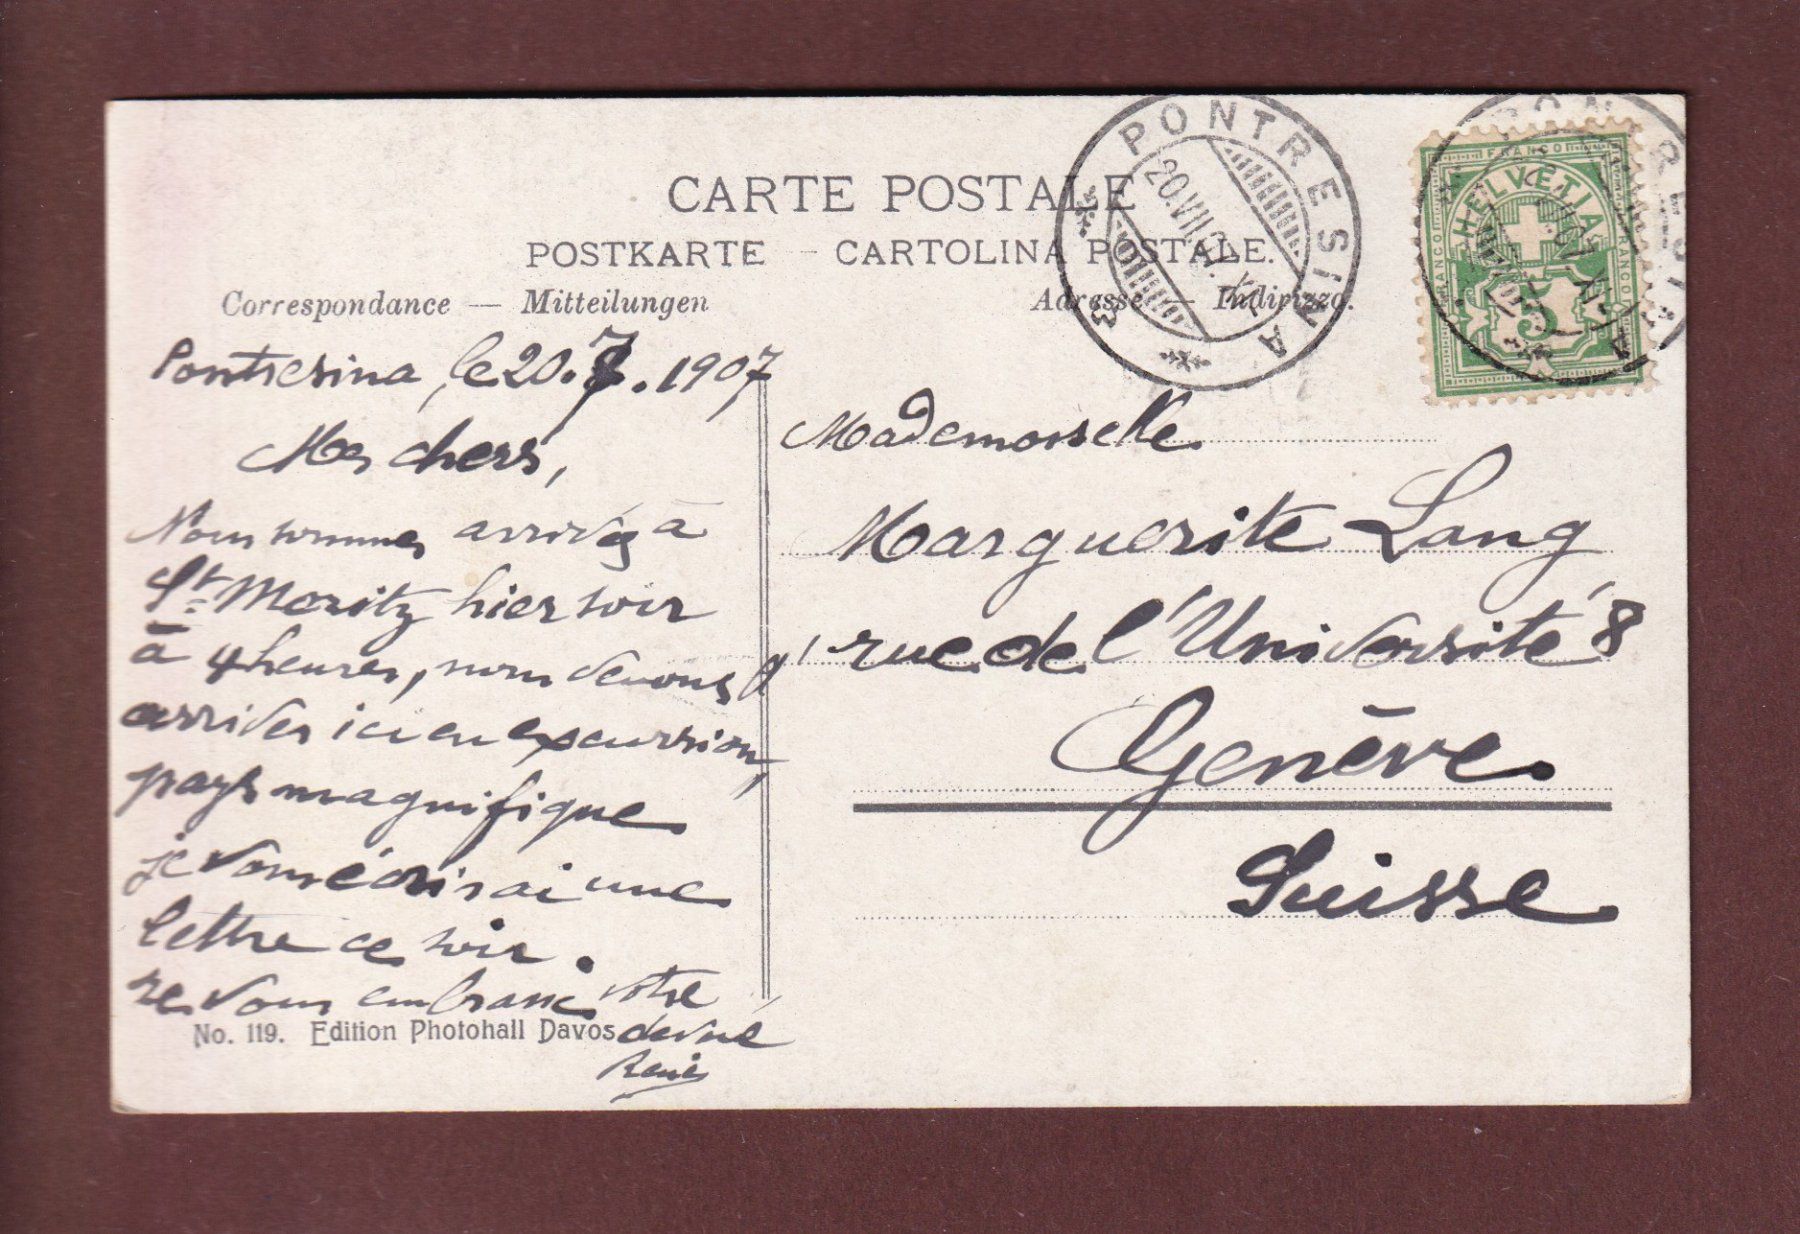 CARTE POSTALE
POSTKARTE – CARTOLINA POSTALE.
Correspondance — Mitteilungen
Adresse — Indirizzo.
PONTRESINA
20.VII.07. XI
PONTRESINA
FRANCO
HELVETIA
FRANCO
FRANCO
5
Pontresina, le 20.7.1907
Mes chers,
Nous sommes arrivés à
St Moritz hier soir
à 4 heures, nous venons d'
arriver ici en excursion,
pays magnifique
je vous écrirai une
lettre ce soir.
Je vous embrasse votre
René
No. 119. Edition Photohall Davos
Mademoiselle
Marguerite Lang
rue de l'Université 8
Genève
Suisse